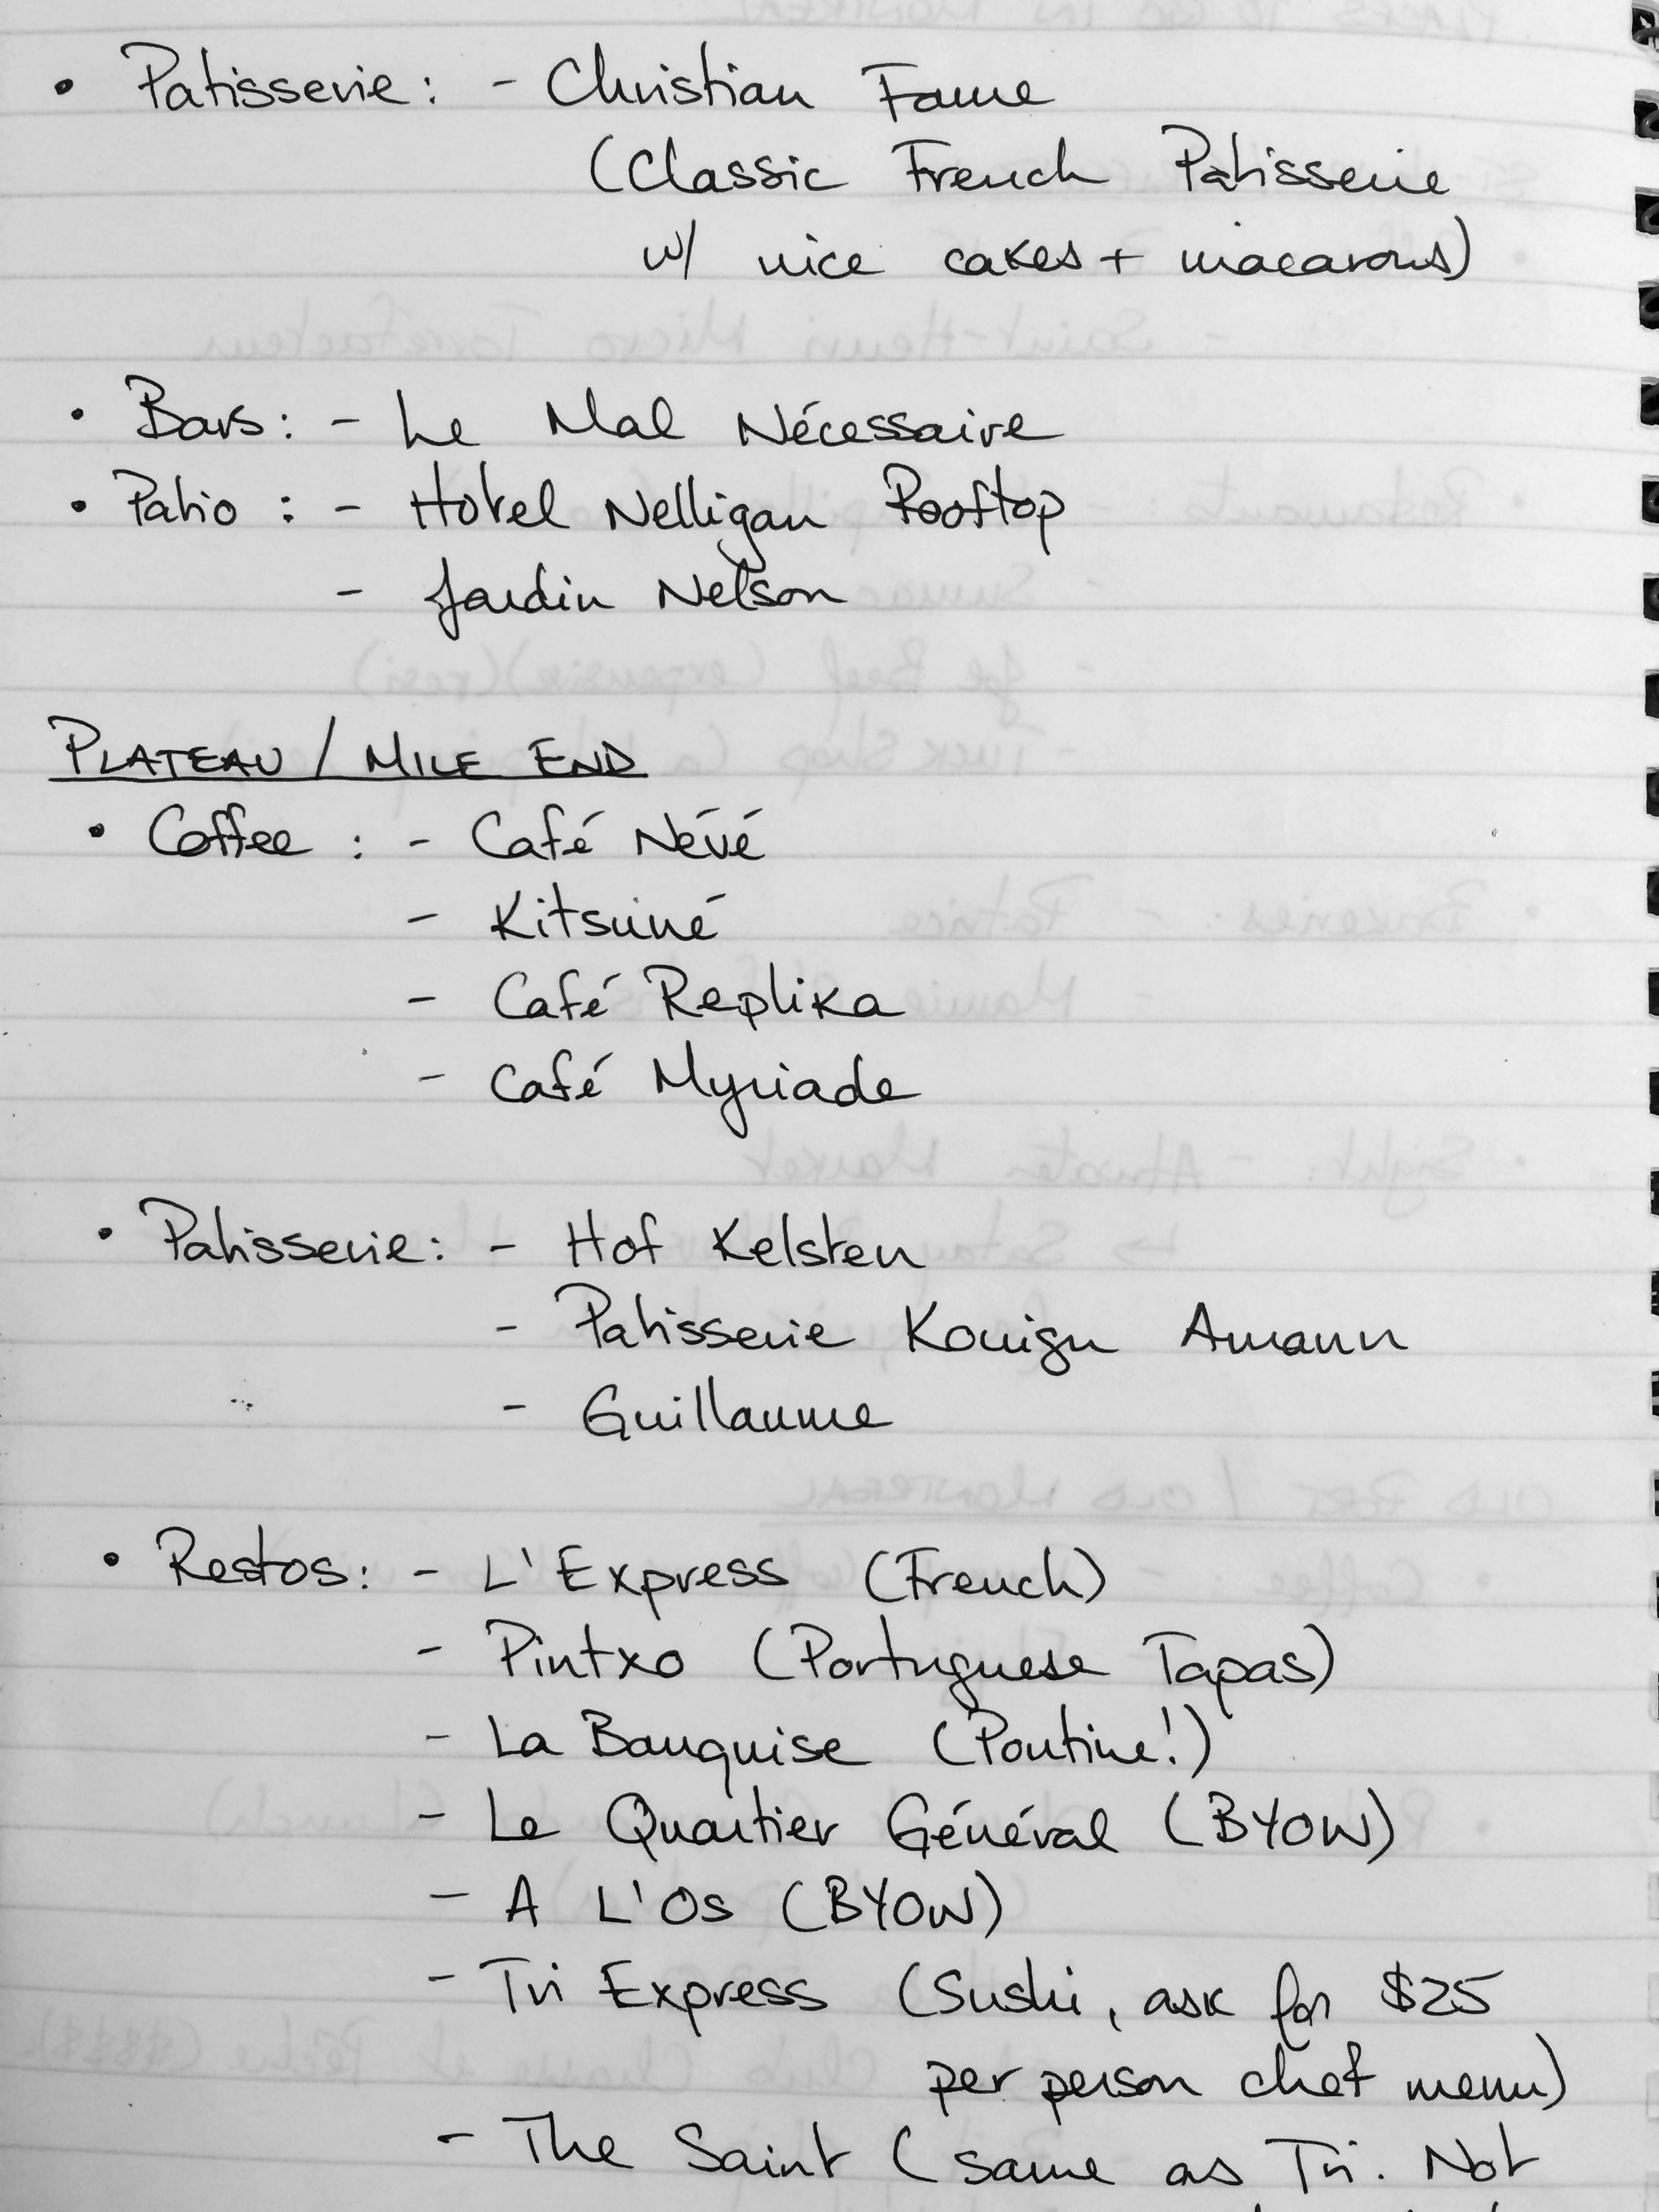 • Patisserie : - Christian Faure
(Classic French Patisserie
w/ nice cakes + macarons)
• Bars : - Le Mal Nécessaire
• Patio : - Hotel Nelligan Rooftop
- Jardin Nelson
PLATEAU / MILE END
• Coffee : - Café Névé
- Kitsuné
- Café Replika
- Café Myriade
• Patisserie : - Hof Kelsten
- Patisserie Kouign Amann
- Guillaume
• Restos : - L'Express (French)
- Pintxo (Portuguese Tapas)
- La Banquise (Poutine!)
- Le Quartier Général (BYOW)
- A L'Os (BYOW)
- Tri Express (Sushi, ask for $25
per person chef menu)
- The Saint (same as Tri. Not